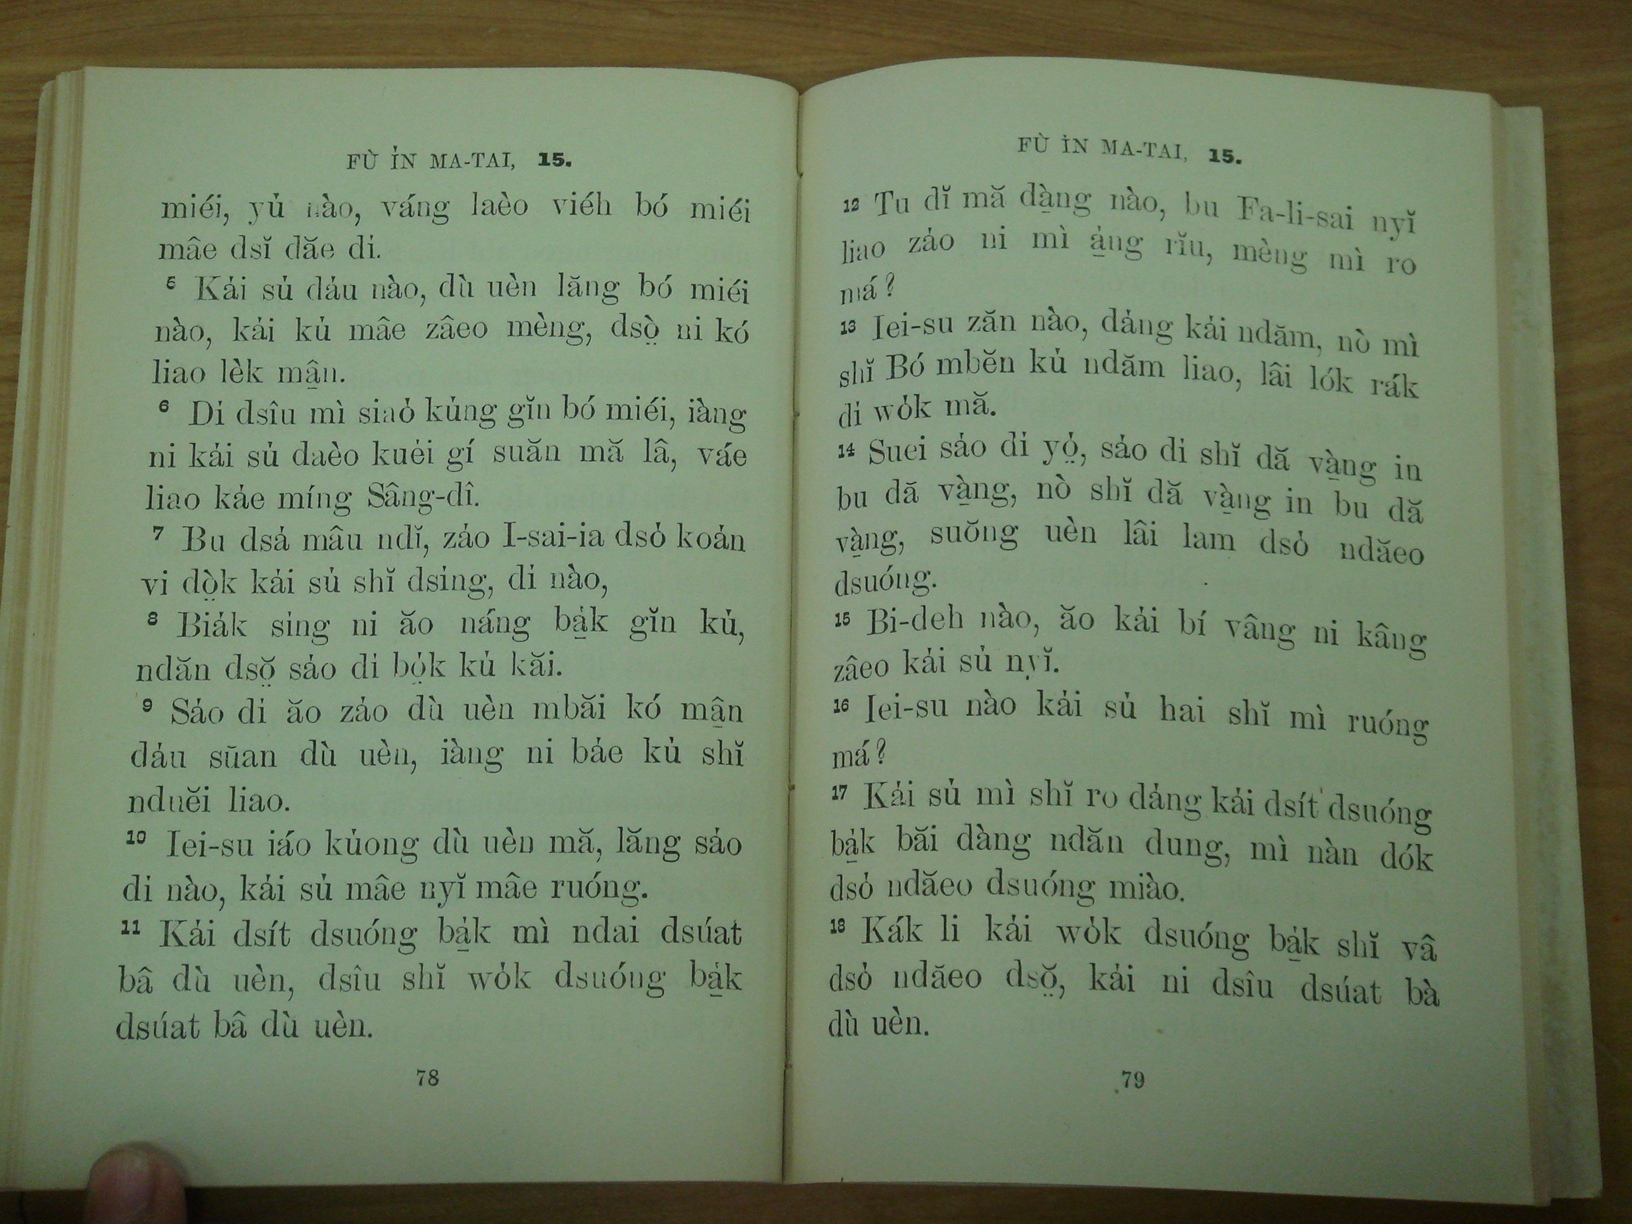 FÙ ỈN MA-TAI, 15.
miéi, yủ nào, váng laèo viéh bó miéi
mâe dsĭ dăe dỉ.
5 Kải sủ dảu nào, dù uèn lăng bó miéi
nào, kải kủ mâe zâeo mèng, dsò̤ ni kó
liao lèk mâ̱n.
6 Dỉ dsîu mì siaỏ kủng gĭn bó miéi, iàng
ni kải sủ daèo kuẻi gí suăn mă lâ, váe
liao kảe míng Sâng-dî.
7 Bu dsả mâu ndĭ, zảo I-sai-ia dsỏ koản
vi dò̤k kải sủ shĭ dsỉng, dỉ nào,
8 Biảk sỉng ni ăo náng bả̱k gĭn kủ,
ndăn dsŏ̤ sảo dỉ bỏ̤k kủ kăi.
9 Sảo dỉ ăo zảo dù uèn mbăi kó mâ̱n
dảu sŭan dù uèn, iàng ni bảe kủ shĭ
nduĕi liao.
10 Iei-su iáo kủong dù uèn mă, lăng sảo
dỉ nào, kải sủ mâe nyĭ mâe ruóng.
11 Kải dsít dsuóng bả̱k mì ndai dsúat
bâ dù uèn, dsîu shĭ wỏk dsuóng bả̱k
dsúat bâ dù uèn.
78
FÙ ỈN MA-TAI, 15.
12 Tu dĭ mă dà̱ng nào, bu Fa-li-sai nyĭ
liao zảo ni mì ả̱ng rĭu, mèng mì ro
má?
13 Iei-su zăn nào, dảng kải ndăm, nò mì
shĭ Bó mbĕn kủ ndăm liao, lâi lók rák
dỉ wỏk mă.
14 Suei sảo dỉ yỏ̤, sảo di shĭ dă và̱ng in
bu dă và̱ng, nò shĭ dă và̱ng in bu dă
và̱ng, suŏng uèn lâi lam dsỏ ndăeo
dsuóng.
15 Bi-deh nào, ăo kải bí vâng ni kâng
zâeo kải sủ nyĭ.
16 Iei-su nào kải sủ hai shĭ mì ruóng
má?
17 Kải sủ mì shĭ ro dảng kải dsít dsuóng
bả̱k băi dàng ndăn dung, mì nàn dók
dsỏ ndăeo dsuóng miào.
18 Kák li kải wỏk dsuóng bả̱k shĭ vâ
dsỏ ndăeo dsŏ̤, kải ni dsîu dsúat bà
dù uèn.
79